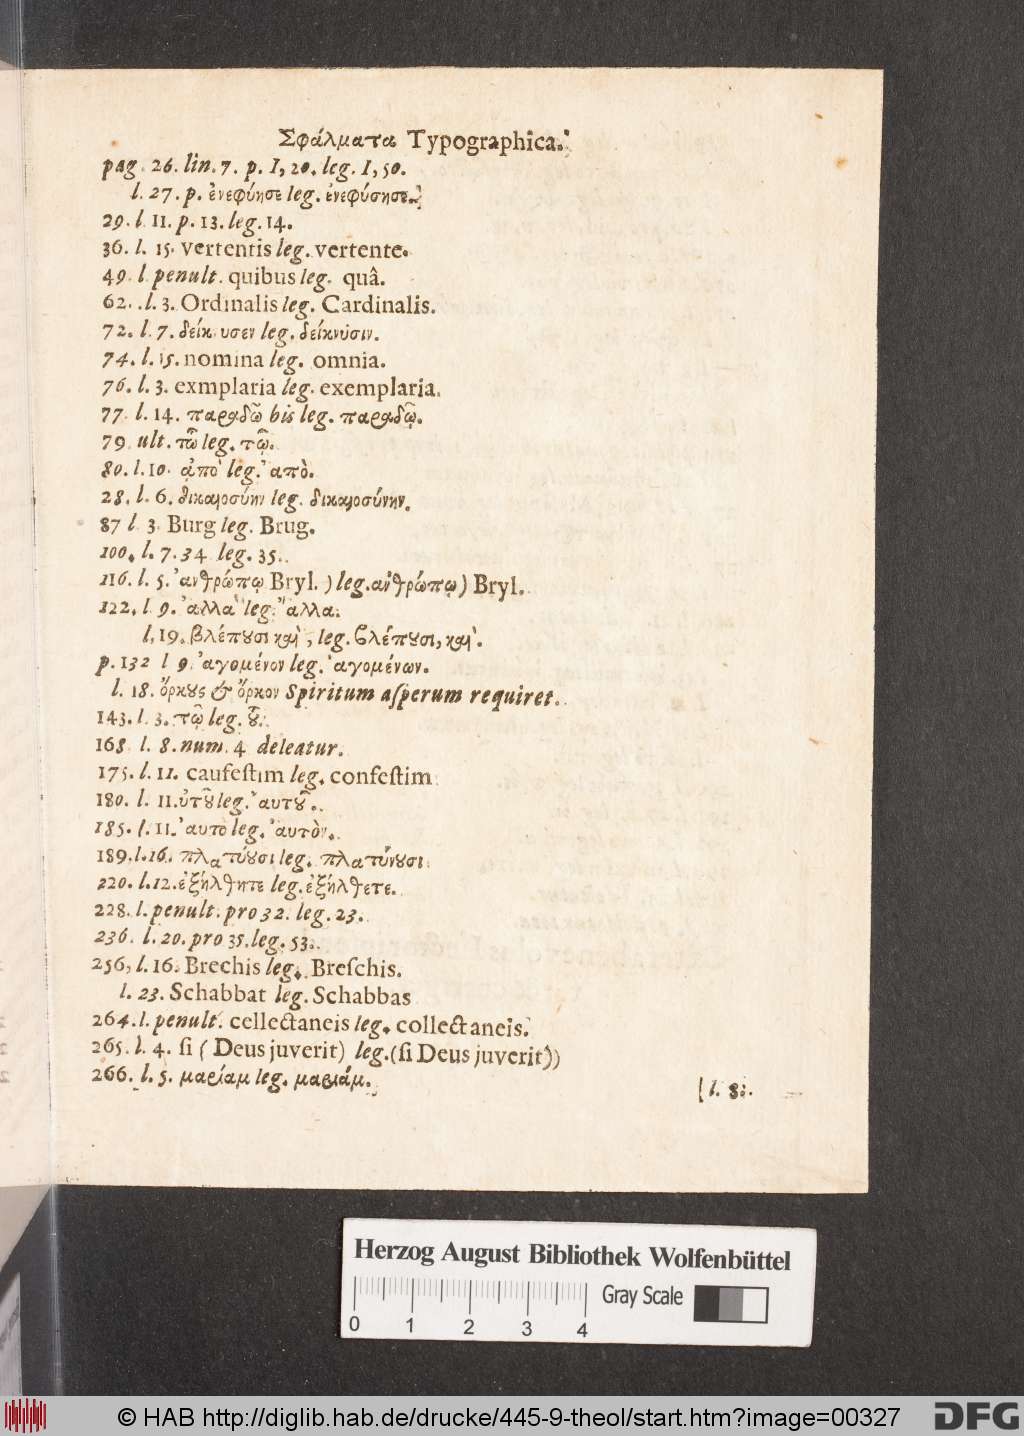 Σφάλματα Typographica.
pag. 26. lin. 7. p. I, 20. leg. I, 50.
l. 27. p. ἐνεφύησε leg. ἐνεφύσησε.
29. l. 11. p. 13. leg. 14.
36. l. 15. vertentis leg. vertente.
49. l. penult. quibus leg. quâ.
62. l. 3. Ordinalis leg. Cardinalis.
72. l. 7. δείκ υσεν leg. δείκνυσιν.
74. l. 15. nomina leg. omnia.
76. l. 3. exmplaria leg. exemplaria.
77. l. 14. παραδῶ bis leg. παραδῷ.
79. ult. τῶ leg. τῷ.
80. l. 10. ἀπο leg. ἀπὸ.
28. l. 6. δικαιοσύην leg. δικαιοσύνην.
87 l. 3. Burg leg. Brug.
100. l. 7. 34 leg. 35.
116. l. 5. ἀνθρώπῳ Bryl. ) leg. ἀνθρώπῳ) Bryl.
122. l. 9. ἀλλα leg. ἄλλα.
l. 19. βλέπουσι καὶ, leg. βλέπουσι, καὶ.
p. 132 l. 9. ἀγομένον leg. ἀγομένων.
l. 18. ὅρκους & ὅρκον Spiritum aſperum requiret.
143. l. 3. τῷ leg. οὗ.
168. l. 8. num. 4 deleatur.
175. l. 11. caufeſtim leg. confeſtim.
180. l. 11. ὑτοῦ leg. αὐτοῦ.
185. l. 11. αὐτο leg. αὐτὸν.
189. l. 16. πλατύουσι leg. πλατύνουσι.
220. l. 12. ἐξήλθητε leg. ἐξήλθετε.
228. l. penult. pro 32. leg. 23.
236. l. 20. pro 35. leg. 53.
256, l. 16. Brechis leg. Breſchis.
l. 23. Schabbat leg. Schabbas
264. l. penult. cellectaneis leg. collectaneis.
265. l. 4. ſi ( Deus juverit) leg. (ſi Deus juverit))
266. l. 5. μαρίαμ leg. μαριάμ.
[l. 8.
Herzog August Bibliothek Wolfenbüttel
Gray Scale
0 1 2 3 4
© HAB http://diglib.hab.de/drucke/445-9-theol/start.htm?image=00327
DFG